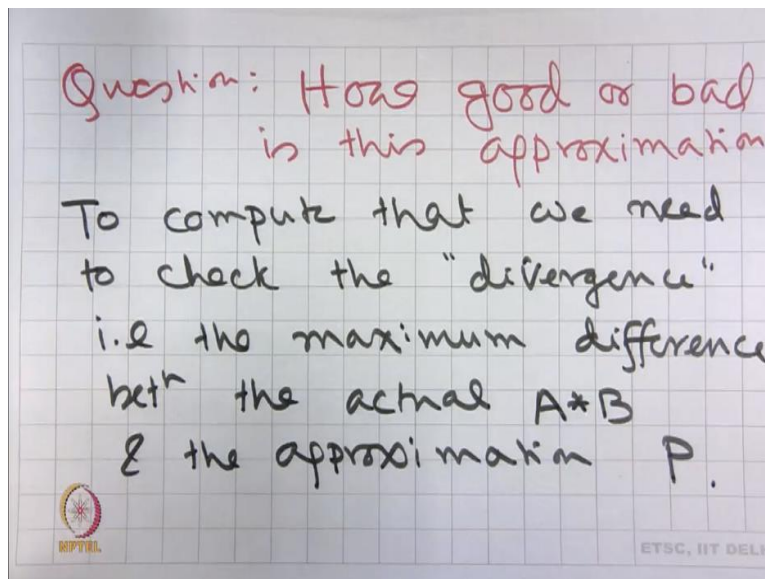 Question: How good or bad
is this approximation
To compute that we need
to check the "divergence"
i.e the maximum difference
betⁿ the actual A*B
& the approximation P.
NPTEL
ETSC, IIT DELH